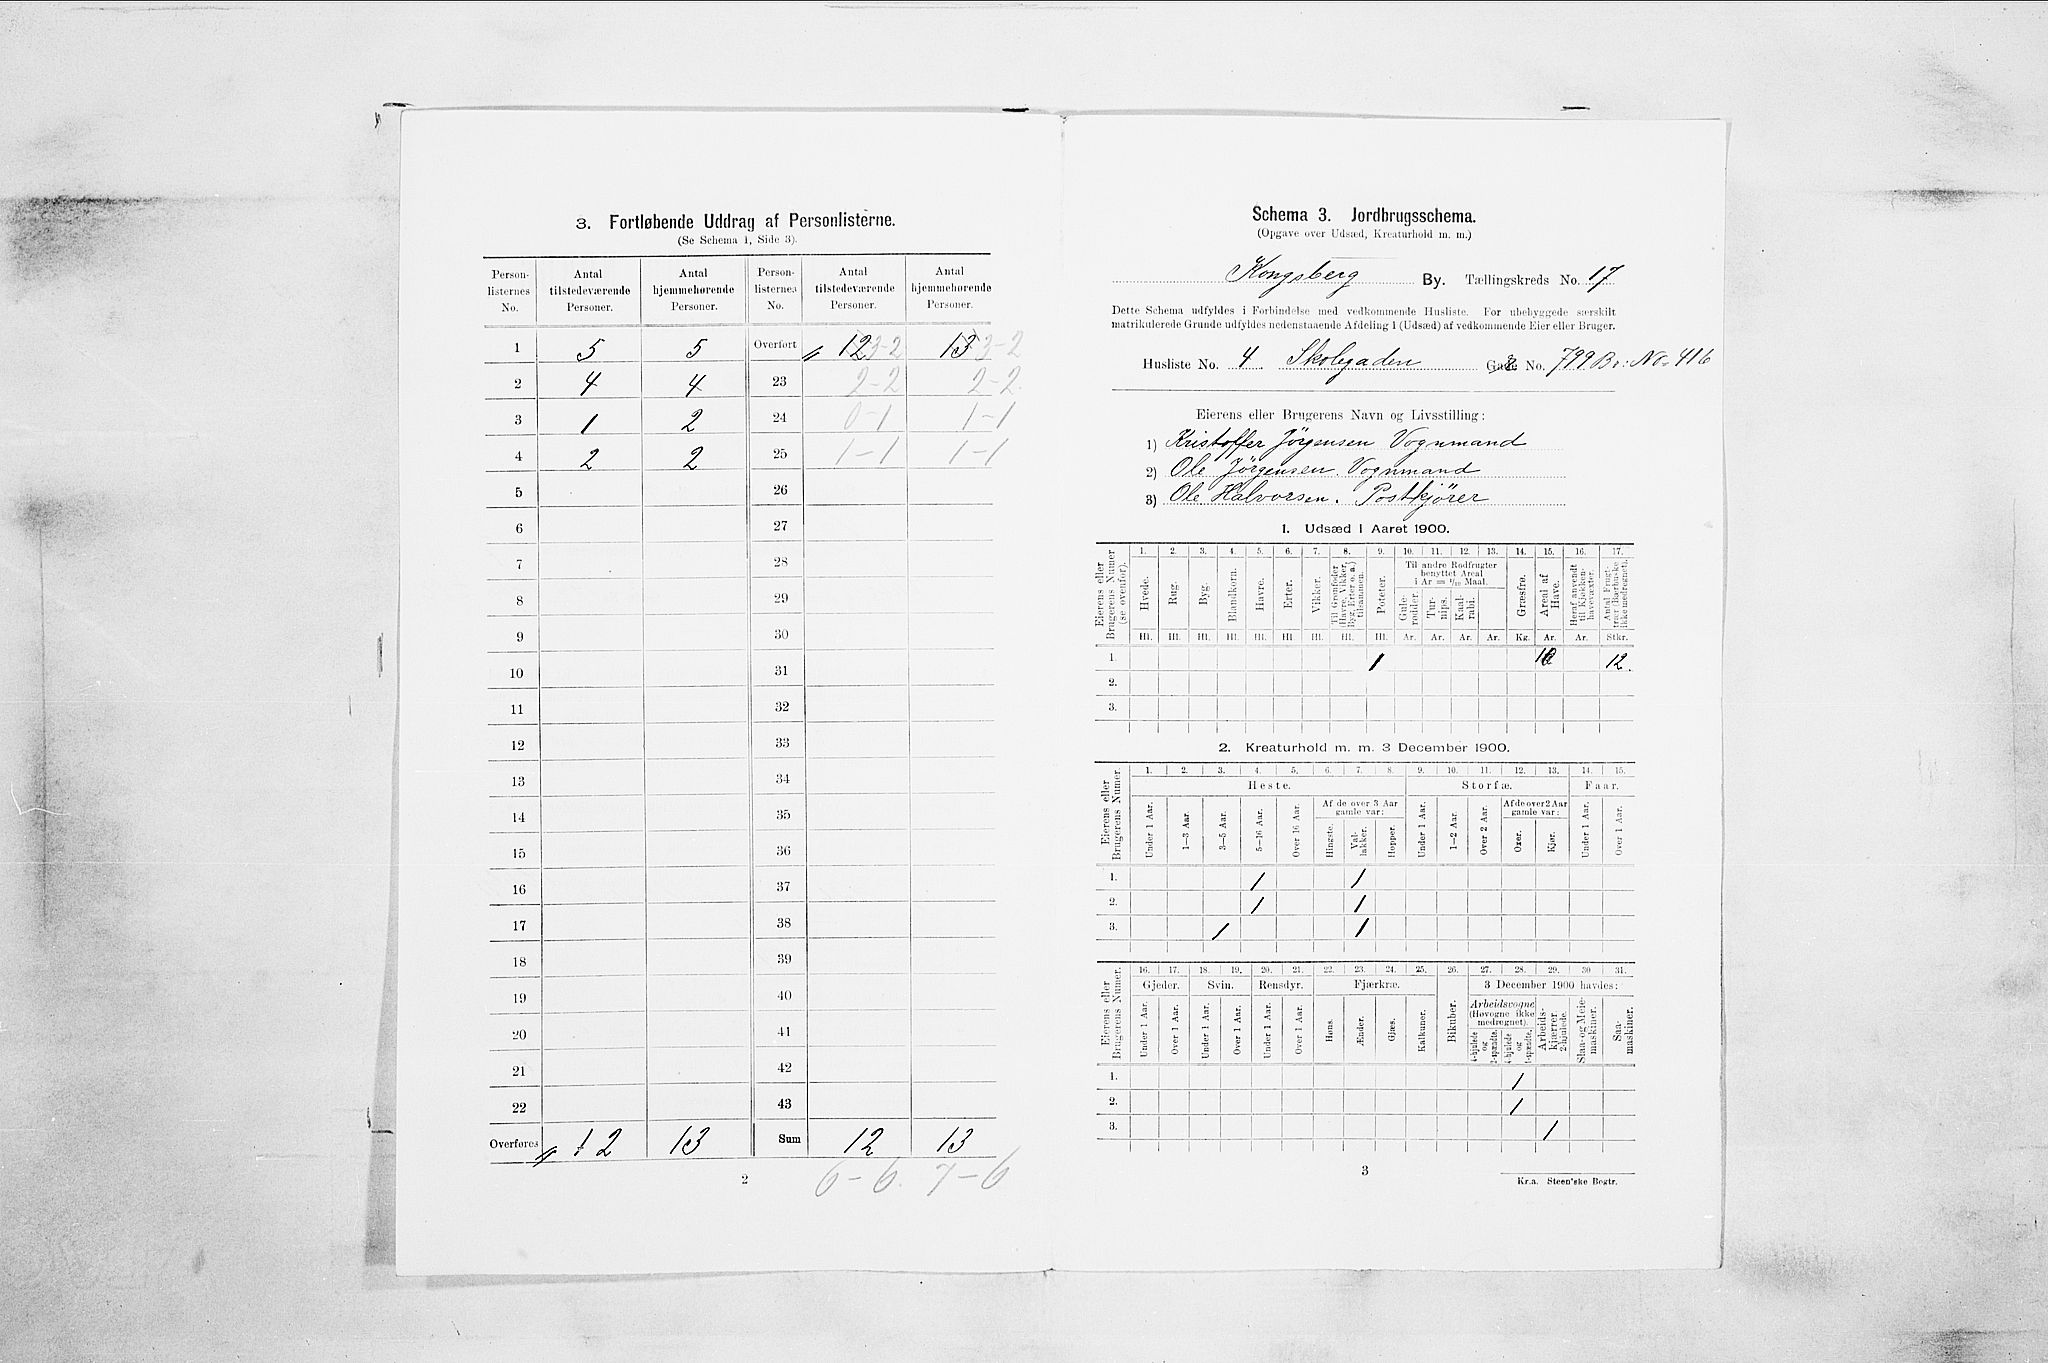 3. Fortløbende Uddrag af Personlisterne.
(Se Schema 1, Side 3).
Person-listernes No. | Antal tilstedeværende Personer. | Antal hjemmehørende Personer. | Person-listernes No. | Antal tilstedeværende Personer. | Antal hjemmehørende Personer.
1 | 5 | 5 | Overført | 12 3-2 | 13 3-2
2 | 4 | 4 | 23 | 2-2 | 2-2.
3 | 1 | 2 | 24 | 0-1 | 1-1
4 | 2 | 2 | 25 | 1-1 | 1-1
5 | 26
6 | 27
7 | 28
8 | 29
9 | 30
10 | 31
11 | 32
12 | 33
13 | 34
14 | 35
15 | 36
16 | 37
17 | 38
18 | 39
19 | 40
20 | 41
21 | 42
22 | 43
Overføres | 12 | 13 | Sum | 12 | 13
6-6. 7-6
2
Schema 3. Jordbrugsschema.
(Opgave over Udsæd, Kreaturhold m. m.)
Kongsberg By. Tællingskreds No. 17
Dette Schema udfyldes i Forbindelse med vedkommende Husliste. For ubebyggede særskilt
matrikulerede Grunde udfyldes nedenstaaende Afdeling 1 (Udsæd) af vedkommende Eier eller Bruger.
Husliste No. 4. Skolegaden Gade No. 799 Br: No. 416
Eierens eller Brugerens Navn og Livsstilling:
1) Kristoffer Jörgensen Vognmand
2) Ole Jörgensen. Vognmand
3) Ole Halvorsen. Postkjörer
1. Udsæd i Aaret 1900.
Eierens eller Brugerens Numer (se ovenfor).
1. 2. 3. 4. 5. 6. 7. 8. 9. 10. 11. 12. 13. 14. 15. 16. 17.
Hvede. Rug. Byg. Blandkorn. Havre. Erter. Vikker. Til Grønfoder (Havre, Vikker, Byg, Erter o. a.) tilsammen. Poteter. Til andre Rodfrugter benyttet Areal i Ar = 1/10 Maal. Gule-rødder. Tur-nips. Kaal-rabi. Græsfrø. Areal af Have. Heraf anvendt til Kjøkken-havevæxter. Antal Frugt-trær (Bærbuske ikke medregnet).
Hl. Hl. Hl. Hl. Hl. Hl. Hl. Hl. Hl. Ar. Ar. Ar. Ar. Kg. Ar. Ar. Stkr.
1. 1 12.
2.
3.
2. Kreaturhold m. m. 3 December 1900.
Eierens eller Brugerens Numer.
1. 2. 3. 4. 5. 6. 7. 8. 9. 10. 11. 12. 13. 14. 15.
Heste. Storfæ. Faar.
Under 1 Aar. 1–3 Aar. 3–5 Aar. 5–16 Aar. Over 16 Aar. Af de over 3 Aar gamle var: Hingste. Val-lakker. Hopper. Under 1 Aar. 1–2 Aar. Over 2 Aar. Af de over 2 Aar gamle var: Oxer. Kjør. Under 1 Aar. Over 1 Aar.
1. 1 1
2. 1 1
3. 1 1
Eierens eller Brugerens Numer.
16. 17. 18. 19. 20. 21. 22. 23. 24. 25. 26. 27. 28. 29. 30 31.
Gjeder. Svin. Rensdyr. Fjærkræ. Bikuber. 3 December 1900 havdes:
Under 1 Aar. Over 1 Aar. Under 1 Aar. Over 1 Aar. Under 1 Aar. Over 1 Aar. Høns. Ænder. Gjæs. Kalkuner. Arbeidsvogne (Høvogne ikke medregnet). 4-hjulede og 2-spændte. 4-hjulede og 1-spændte. Arbeids-kjærrer, 2-hjulede. Slaa- og Meie-maskiner. Saa-maskiner.
1. 1
2. 1
3. 1
3
Kr.a. Steen'ske Bogtr.